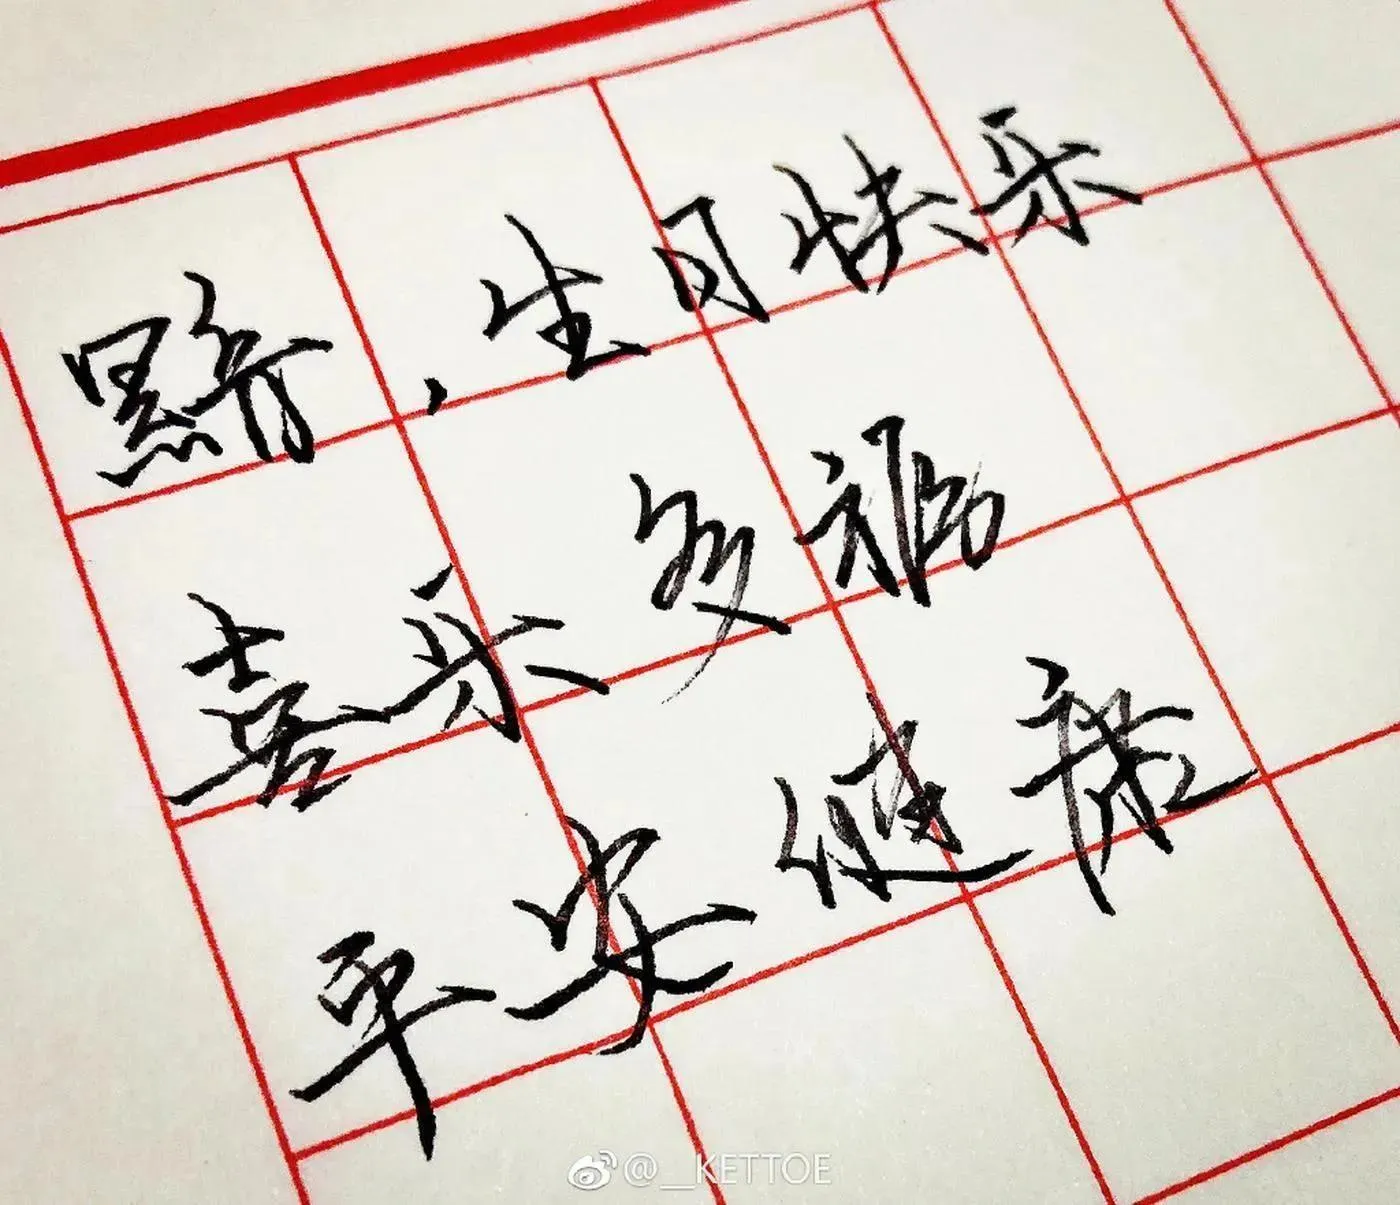 黥，生日快乐
喜乐多福
平安健康
@__KETTOE